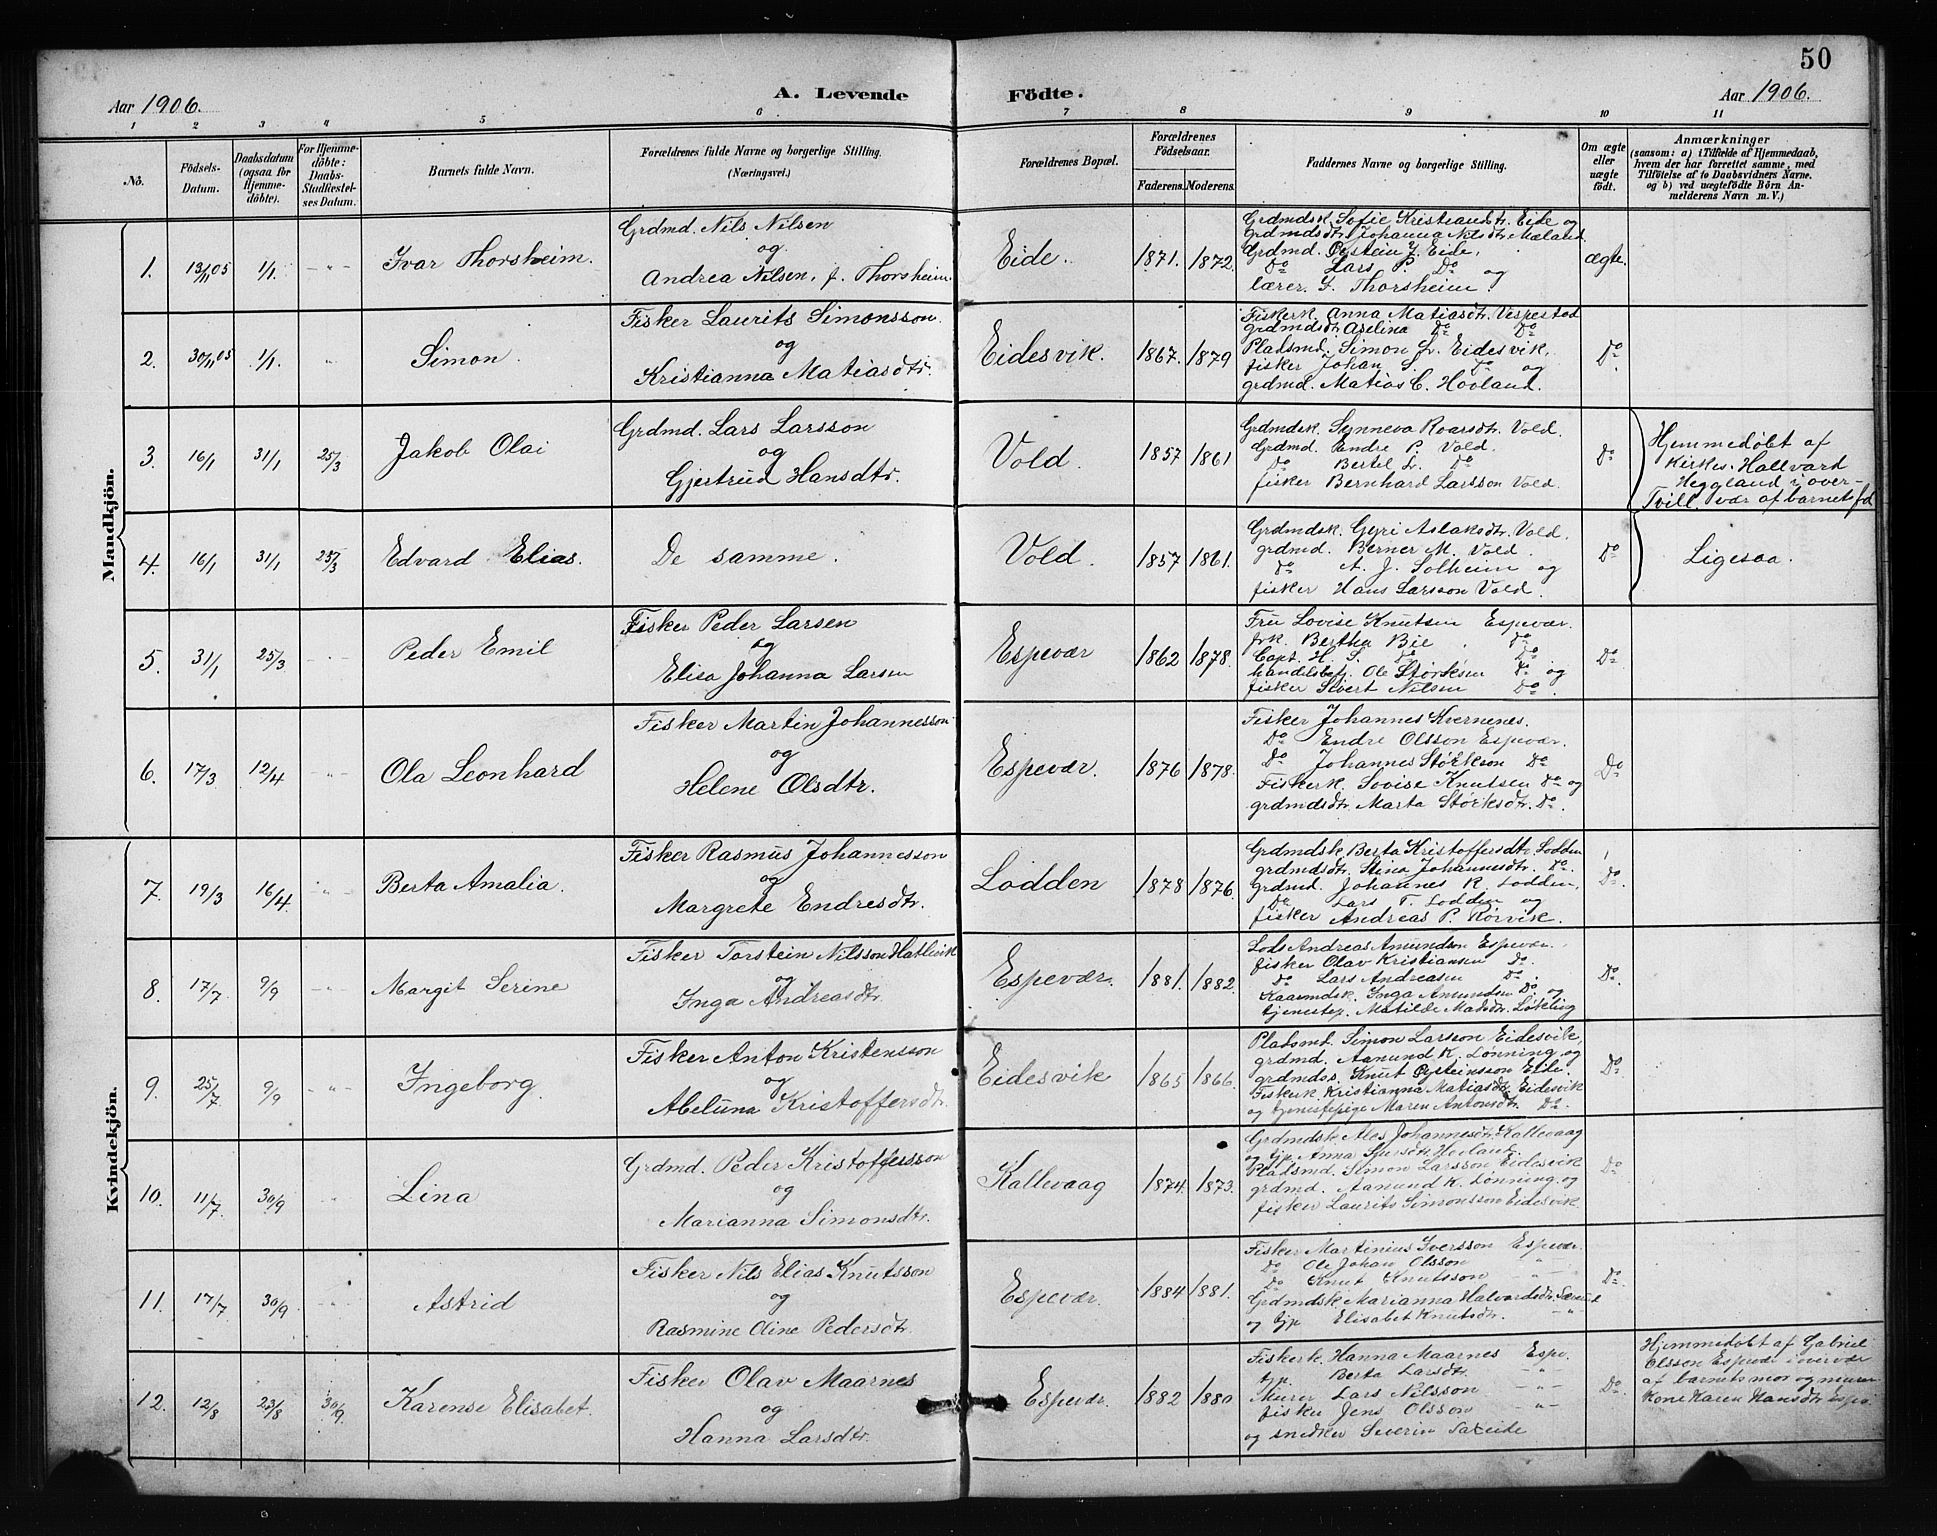 50
Aar 1906.
A. Levende
Födte.
Aar 1906.
1 2 3 4 5 6 7 8 9 10 11
No.
Födsels-
Datum.
Daabsdatum
(ogsaa for
Hjemme-
döbte).
For Hjemme-
döbte:
Daabs-
Stadfæstel-
ses Datum.
Barnets fulde Navn.
Forældrenes fulde Navne og borgerlige Stilling.
(Næringsvei.)
Forældrenes Bopæl.
Forældrenes
Födselsaar.
Faderens. Moderens.
Faddernes Navne og borgerlige Stilling.
Om ægte
eller
uægte
födt.
Anmærkninger
(saasom: a) i Tilfælde af Hjemmedaab,
hvem der har forrettet samme, med
Tilföielse af to Daabsvidners Navne.
og b) ved uægtefödte Börn An-
melderens Navn m. V.)
Mandkjön.
1. 13/11 05 1/1. - " - Ivar Thorsheim.
Grdmd. Nils Nilsen
og
Andrea Nilsen, f. Thorsheim.
Eide. 1871. 1872.
Grdmdsk. Sofie Kristiansdtr. Eide og
Grdmdsdtr. Johanna Nilsdtr. Mæland.
Grdmd. Øystein J. Eide,
Do Lars P. Do og
lærer. S. Thorsheim.
ægte.
2. 30/11 05 1/1. " Simon.
Fisker Laurits Simonsson.
og
Kristianna Matiasdtr.
Eidesvik. 1867. 1879
Fiskerk. Anna Matiasdtr. Vespestad
grdmdsdtr. Aselina Do Do
Pladsmd. Simon L. Eidesvik,
fisker Johan S. Do og
grdmd. Matias C. Hovland.
Do
3. 16/1 31/1 25/3 Jakob Olai
Grdmd. Lars Larsson
og
Gjertrud Hansdtr.
Vold. 1857 1861
Grdmdsk. Synneva Roarsdtr. Vold.
Grdmd. Endre P. Vold.
Do Bertel L. Do
fisker Bernhard Larsson Vold.
Do
Hjemmedøbt af
Kirkes. Hallvard
Heggland i over-
Tvill. vær af barnets fd
4. 16/1 31/1 25/3 Edvard Elias.
De samme.
Vold. 1857 1861.
Grdmdsk. Gyri Aslaksdtr. Vold,
grdmd. Berner M. Vold.
Do A. J. Solheim og
fisker Hans Larsson Vold.
Do
Ligesaa.
5. 31/1 25/3 Peder Emil
Fisker Peder Larsen
og
Elisa Johanna Larsen
Espevær 1862 1878.
Fru Lovise Knutsen Espevær.
frk. Bertha Bie Do
Capt. H. S. Do Do
handelsbetj. Ole Størksen Do og
fisker Sivert Nilsen Do.
Do
6. 17/3 12/4 - " - Ola Leonhard
Fisker Martin Johannesson
og
Helene Olsdtr.
Espevær. 1876 1878.
Fisker Johannes Kvernenes.
Do Endre Olsson Espevær.
Do Johannes Størkson Do
Fiskerk. Lovise Knutsen Do og
grdmdsdtr. Marta Størksdtr. Do.
Do
Kvindekjön.
7. 19/3 16/4. " Berta Amalia.
Fisker Rasmus Johannesson
og
Margrete Endresdtr.
Lodden 1878 1876.
Grdmdsk. Berta Kristoffersdtr. Lodden
grdmdsdtr. Stina Johannesdtr. Do.
grdmd. Johannes K. Lodden,
Do Lars T. Lodden og
fisker Andreas P. Rørvik.
Do.
8. 17/7 9/9 - " - Margit Serine
Fisker Torstein Nilsson Hatlevik
og
Inga Andreasdtr.
Espevær. 1881. 1882.
Lods Andreas Amundsen Espevær.
fisker Olav Kristiansen Do.
Do Lars Andreasen Do.
Kaarmdsk. Inga Amundsen Do. og
tjenestep. Matilde Madsdtr. Løkling
Do.
9. 25/7 9/9 - " - Ingeborg.
Fisker Anton Kristensson
og
Abeluna Kristoffersdtr.
Eidesvik 1865 1866.
Pladsmd. Simon Larsson Eidesvik,
grdmd. Aamund K. Lønning og
grdmds. Knut Øysteinsson Eide.
Fiskerk. Kristianna Matiasdtr. Eidesvik
og tjenestepige Maren Antonsdtr. Do.
Do.
10. 11/7. 30/9 " Lina
Grdmd. Peder Kristoffersson
og
Marianna Simonsdtr.
Kallevaag 1874. 1873.
Grdmdsk. Ales Johannesdtr. Kallevaag
og tjp. Anna Sjursdtr. Hovland.
Pladsmd. Simon Larsson Eidesvik
grdmd. Aamund K. Lønning og
fisker Laurits Simonsson Eidesvik.
Do
11. 17/7 30/9 - " - Astrid
Fisker Nils Elias Knutsson
og
Rasmine Oline Pedersdtr.
Espevær. 1884 1881.
Fisker Martinius Iversson Espevær.
Do Ole Johan Olsson - " -
Do Knut Knutsson - " -
Grdmdsk. Marianna Halvardsdtr.
og tjp Elisabet Knutsdtr. - " -
Do
12. 12/8 23/8 30/9. Karense Elisabet.
Fisker Olav Maarnes
og
Hanna Larsdtr.
Espevær. 1882 1880.
Fiskerk. Hanna Maarnes Espv.
tjp. Berta Larsdtr. - " -
Murer Lars Nilsson - " -
fisker Jens Olsson - " -
og snedker Severin Saxeide
Do
Hjemmedøbt af Gabriel
Olssen Espevær i overvær
af barnets mor og murer
kone Karen Hansdtr. Espv.